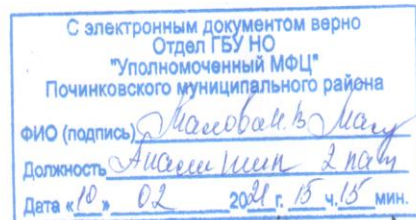 С электронным документом верно
Отдел ГБУ НО
"Уполномоченный МФЦ"
Починковского муниципального района
ФИО (подпись)
Должность 2 кат
Дата «10» 02 2021 г. 15 ч. 15 мин.